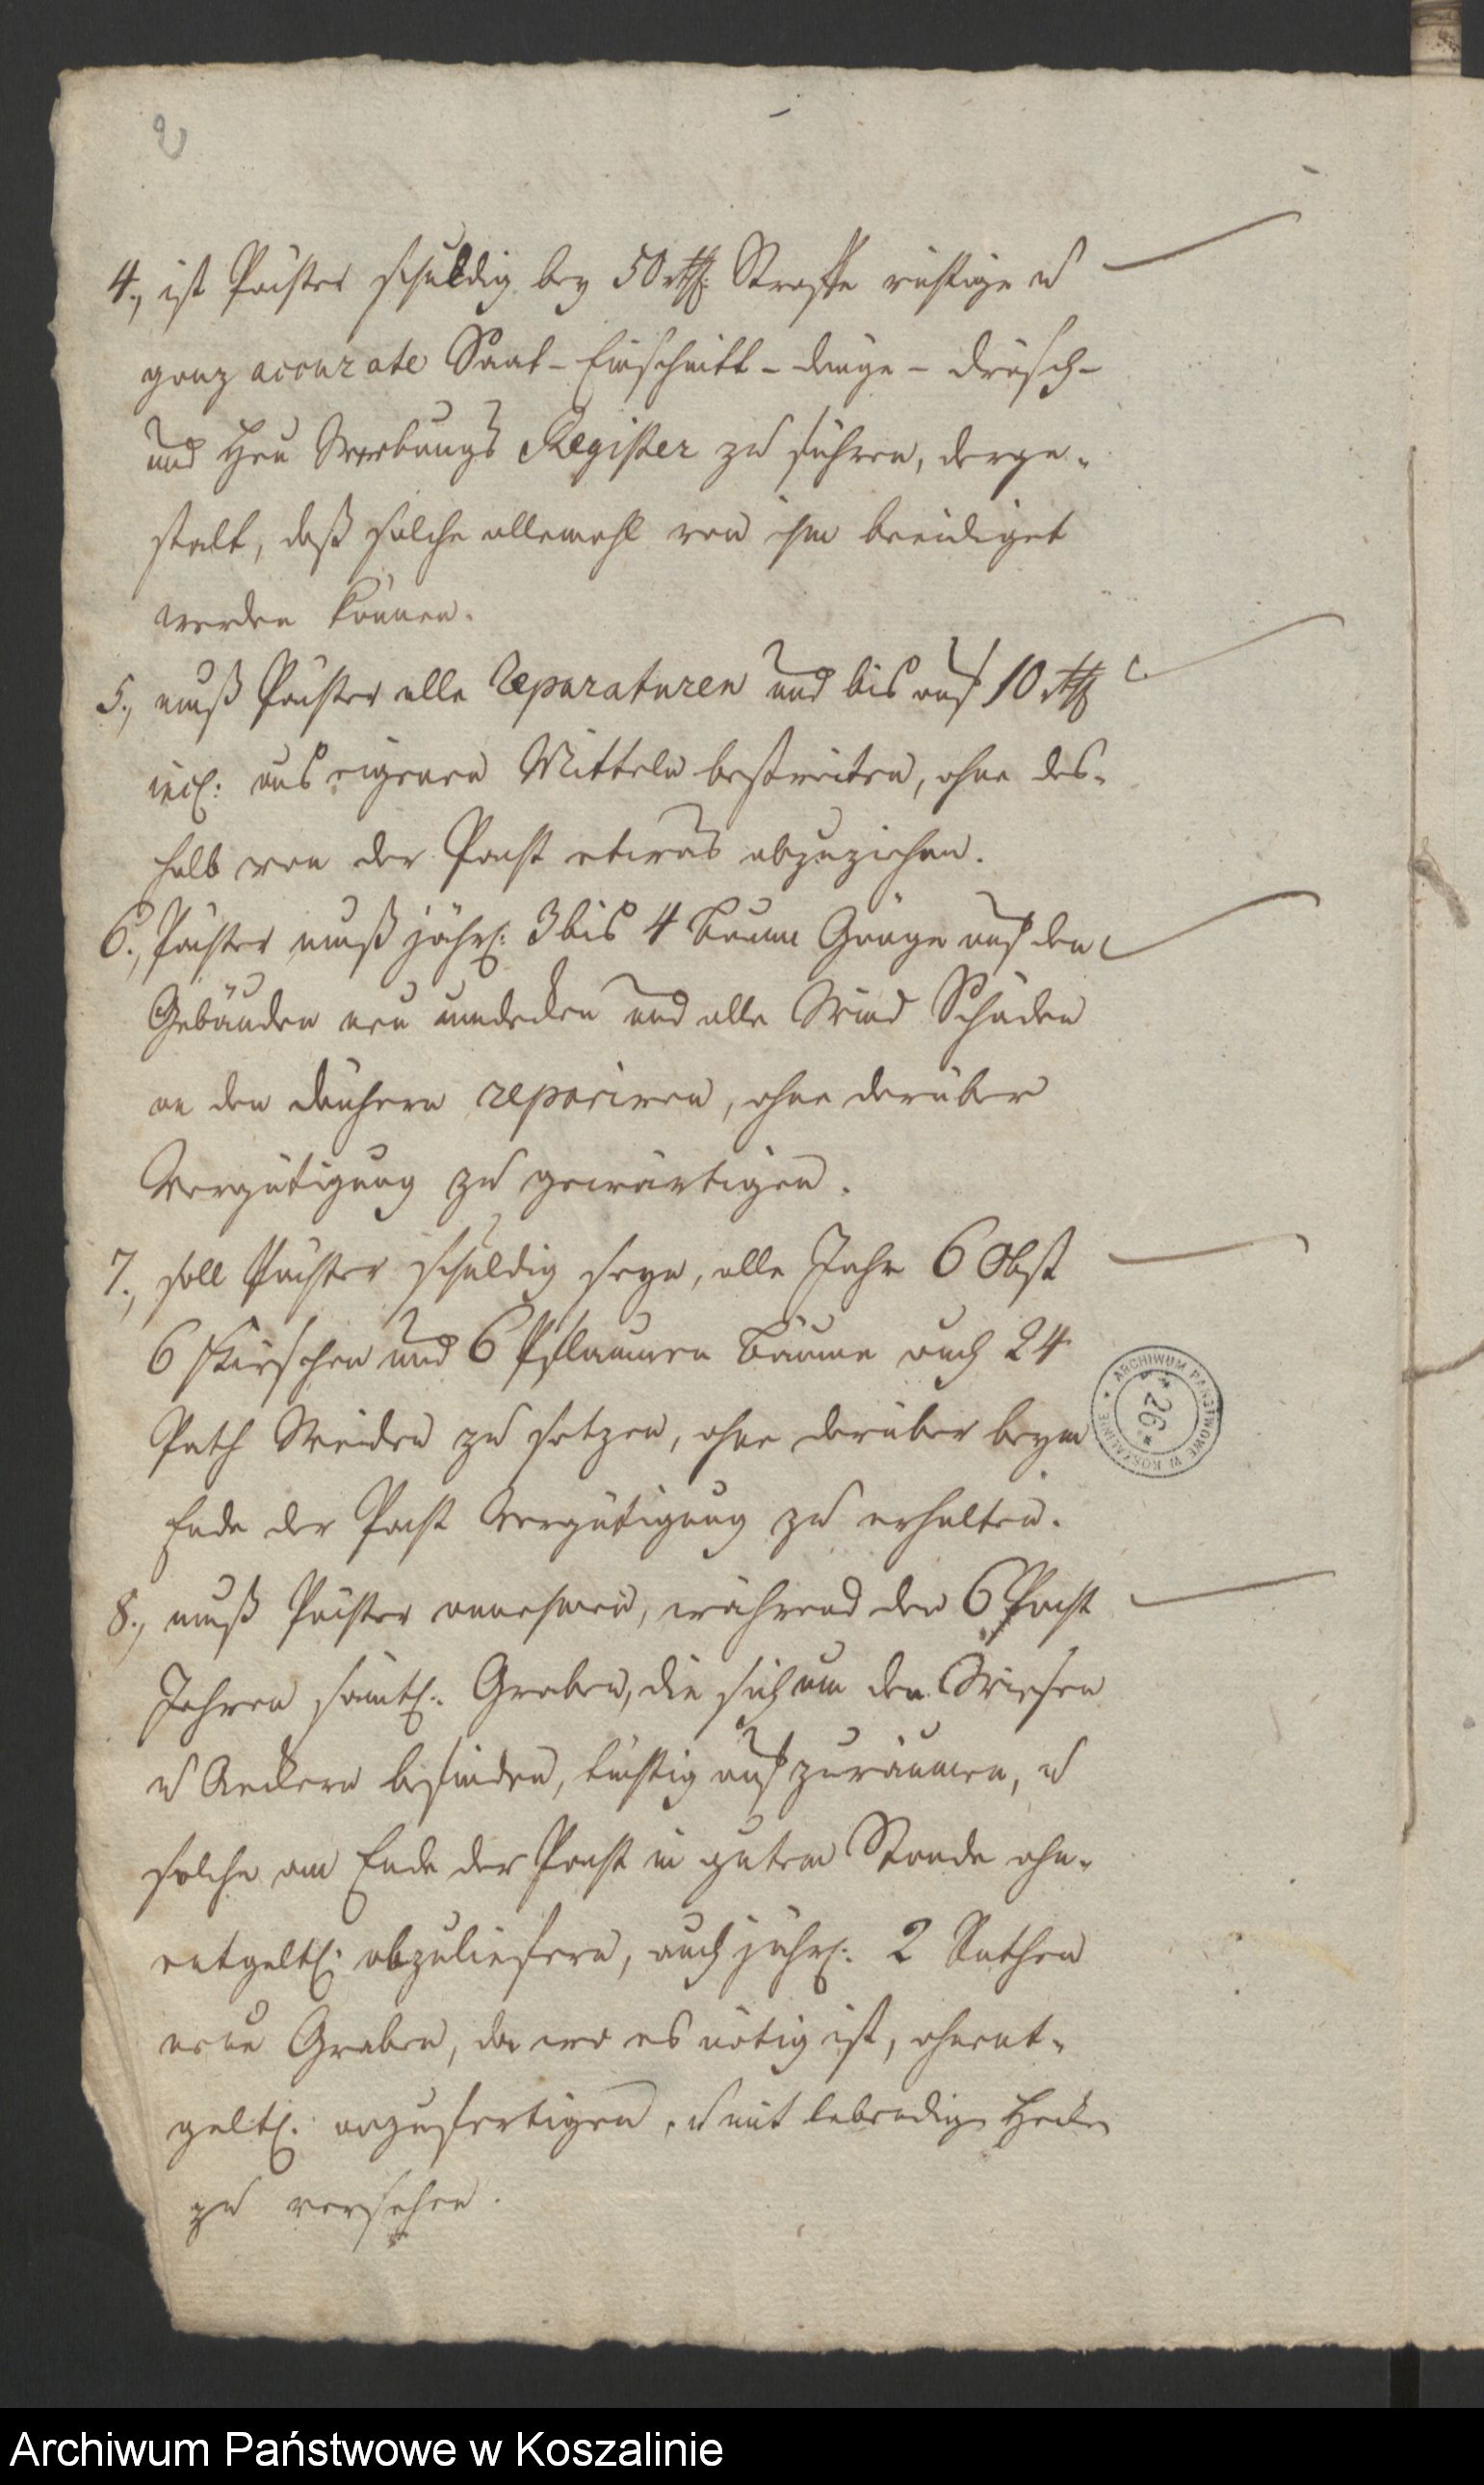 2
4., ist Pächter schuldig bey 50 rthl. Straffe richtige u
ganz accurate Saat- Einschnitt- Dünge- Drösch-
und Heu Werbungs Register zu führen, derge-
stalt, daß solche allemahl von ihm beeidiget
werden können.
5., muß Pächter alle Reparaturen und bis auf 10 rthl
incl: aus eigenen Mitteln bestreiten, ohne des-
halb von der Pacht etwas abzuziehen.
6., Pächter muß jährl: 3 bis 4 Gänge auf den
Gebäuden neu umdecken und alle Wind Schäden
an den Dächern repariren, ohne darüber
Vergütigung zu gewärtigen.
7., soll Pächter schuldig seyn, alle Jahr 6 Obst
6 Kirschen und 6 Pflaumen Bäume auch 24
Path Weiden zu setzen, ohne darüber beym
Ende der Pacht Vergütigung zu erhalten.
8., muß Pächter annehmen, während den 6 Pacht
Jahren sämtl: Graben, die sich um den Wiesen
u Aeckern befinden, tüchtig aufzuräumen, u
solche am Ende der Pacht in gutem Stande ohn-
entgeltl: abzuliefern, auch jährl: 2 Ruthen
neue Graben, da wo es nötig ist, ohnent-
geltl: anzufertigen, u mit lebendige Hecken
zu versehen.
ARCHIWUM PAŃSTWOWE W KOSZALINIE
* 26 *
Archiwum Państwowe w Koszalinie